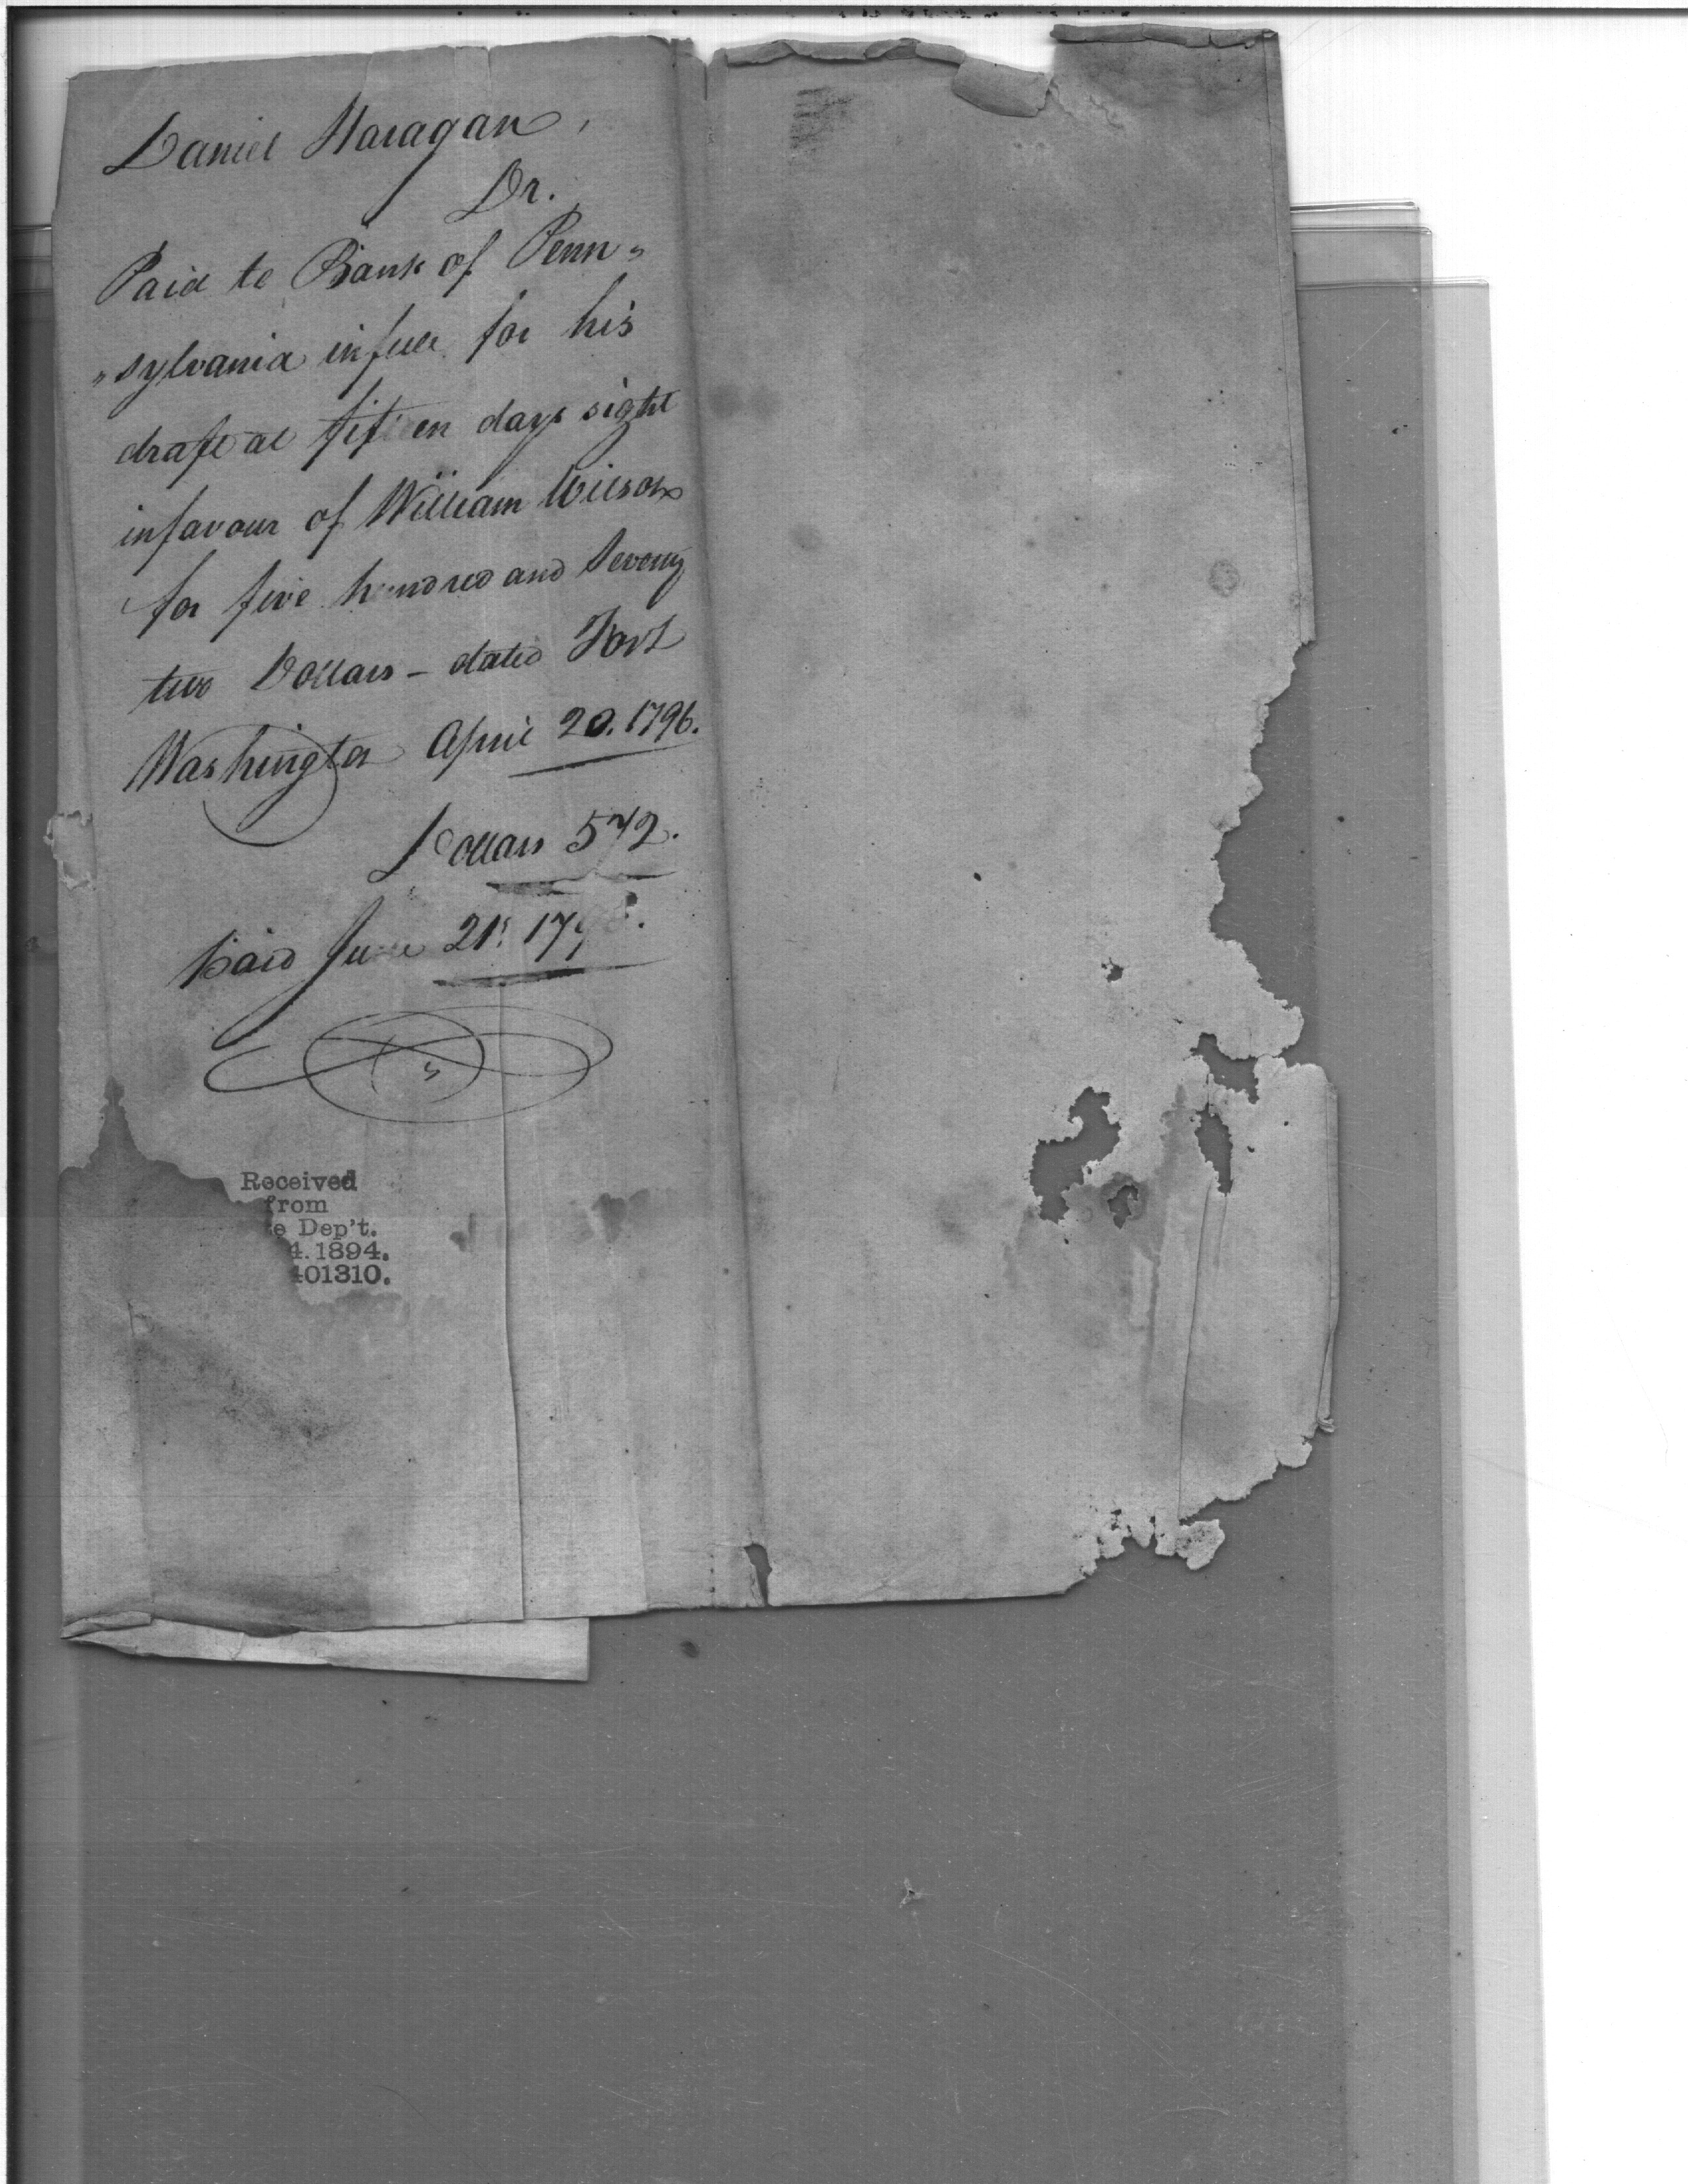 Daniel Haragan,
Dr.
Paid to Bank of Penn"
"sylvania in full for his
draft at fifteen days sight
in favour of William Wilson
for five hundred and seventy
two Dollars – dated Fort
Washington April 20. 1796.
Dollars 572.
Paid June 21st 179
Received
from
e Dep't.
4.1894.
401310.